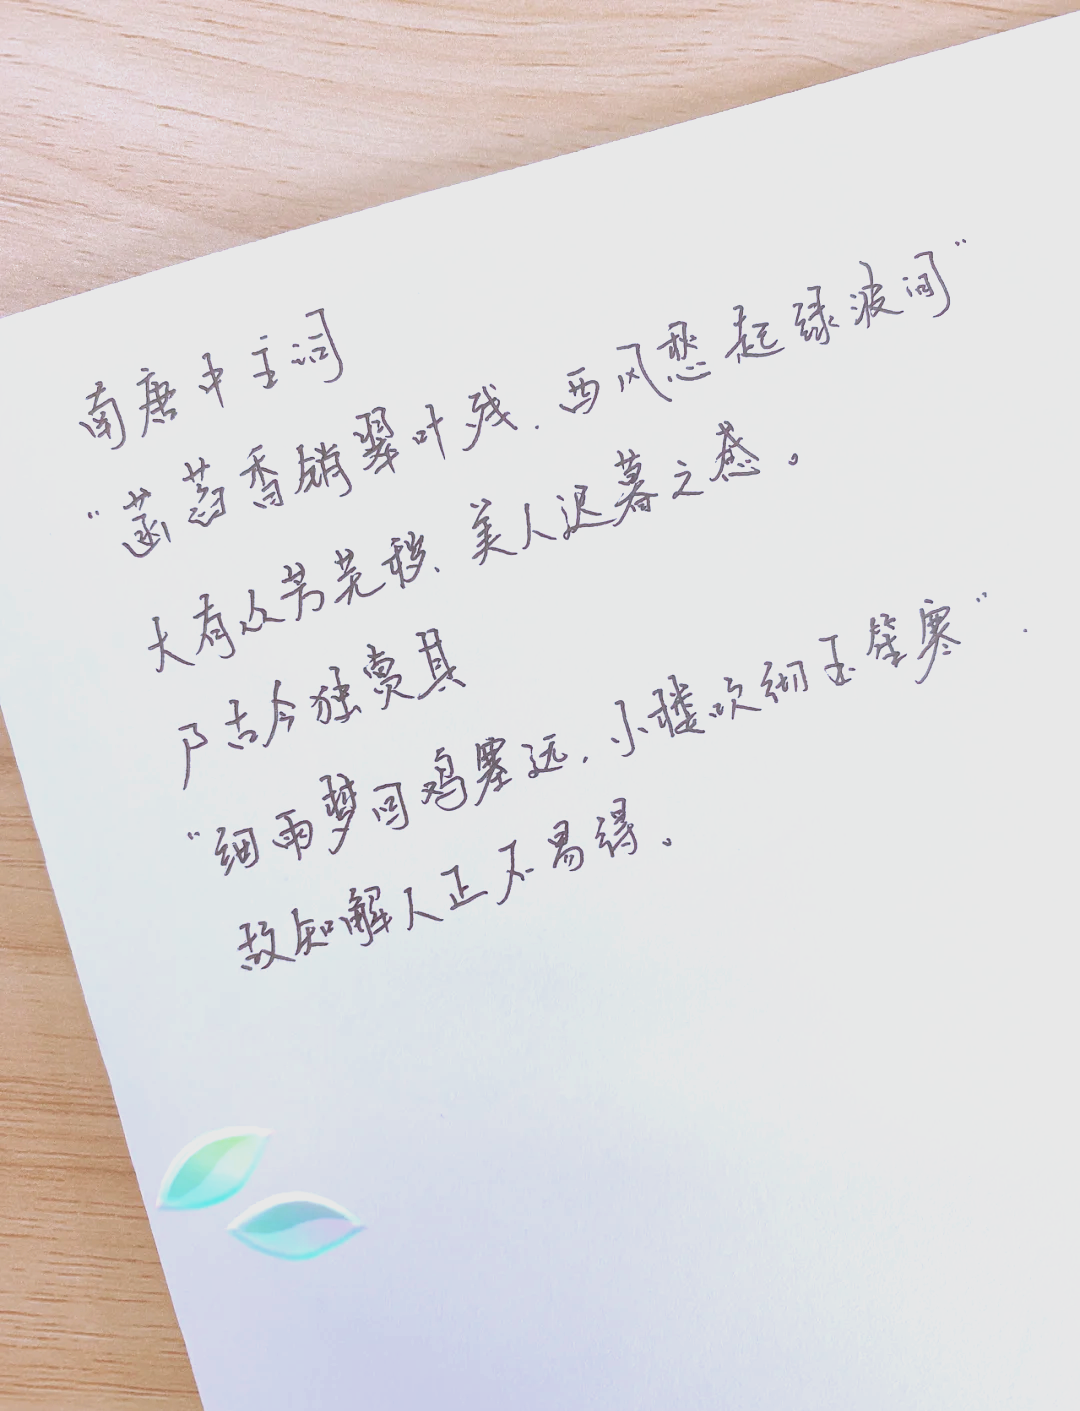 南唐中主词
“菡萏香销翠叶残．西风愁起绿波间”
大有众芳芜秽、美人迟暮之感。
乃古今独赏其
“细雨梦回鸡塞远．小楼吹彻玉笙寒”．
故知解人正不易得。